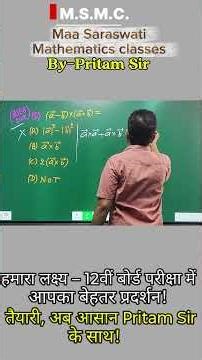 M.S.M.C.
Maa Saraswati
Mathematics classes
By-Pritam Sir
(a⃗-b⃗)×(a⃗×b⃗)=
X (A) |a⃗|²-|b⃗|² a⃗×a⃗+a⃗×b⃗
(B) a⃗×b⃗
(C) 2(a⃗×b⃗)
(D) NOT
हमारा लक्ष्य – 12वीं बोर्ड परीक्षा में
आपका बेहतर प्रदर्शन!
तैयारी, अब आसान Pritam Sir
के साथ!